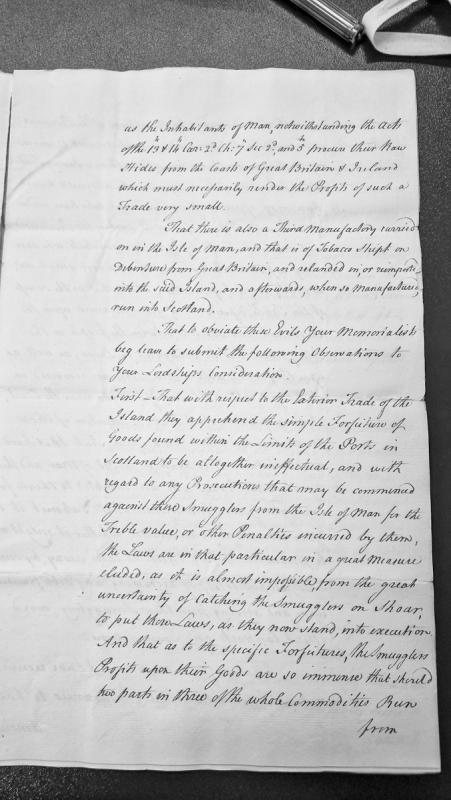 as the Inhabitants of Man, notwithstanding the Acts
of the 13th & 14th Car: 2d Ch: 7th Sec 2d, and 5th procure their Raw
Hides from the Coasts of Great Britain & Ireland
which must necessarily render the Profits of such a
Trade very small.
That there is also a Third Manufactory carried
on in the Isle of Man, and that is of Tobacco Shipt on
Debenture from Great Britain, and relanded in, or reimported
into the said Island, and afterwards, when so manufactured,
run into Scotland.
That to obviate these Evils Your Memorialists
beg leave to submit the following Observations to
Your Lordships Consideration.
First - That with respect to the Exterior Trade of the
Island they apprehend the simple Forfeiture of
Goods found within the Limits of the Ports in
Scotland to be altogether ineffectual, and with
regard to any Prosecutions that may be commenced
against these Smugglers from the Isle of Man for the
Treble value, or other Penalties incurred by them,
the Laws are in that particular in a great measure
eluded, as it is almost impossible, from the great
uncertainty of Catching the Smugglers on Shoar,
to put those Laws, as they now stand, into execution.
And that as to the specific Forfeitures, the Smugglers
Profits upon their Goods are so immense that should
two parts in three of the whole Commodities Run
from